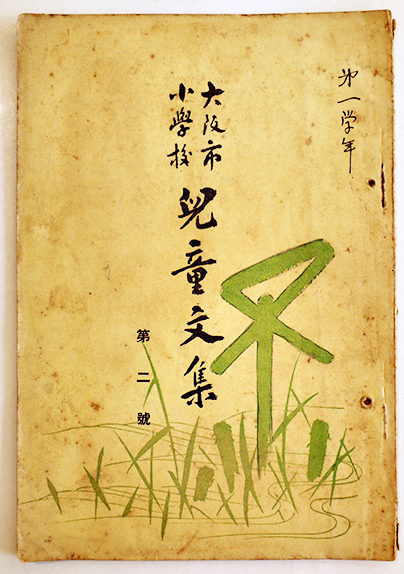 第一学年
大阪市
小學校
兒童文集
第二號